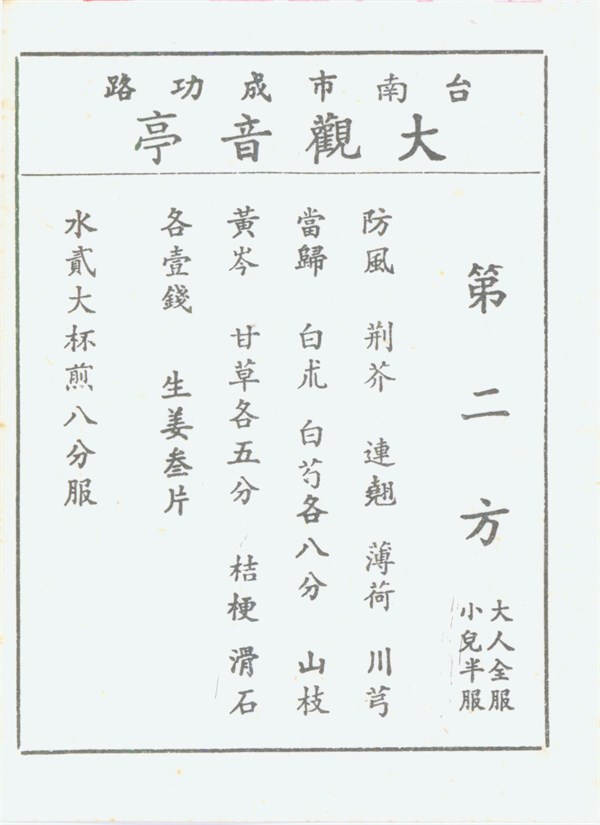 台南市成功路
大觀音亭
第二方
大人全服
小兒半服
防風 荆芥 連翹 薄荷 川芎
當歸 白朮 白芍各八分 山枝
黃岑 甘草各五分 桔梗 滑石
各壹錢 生姜叁片
水貳大杯煎八分服